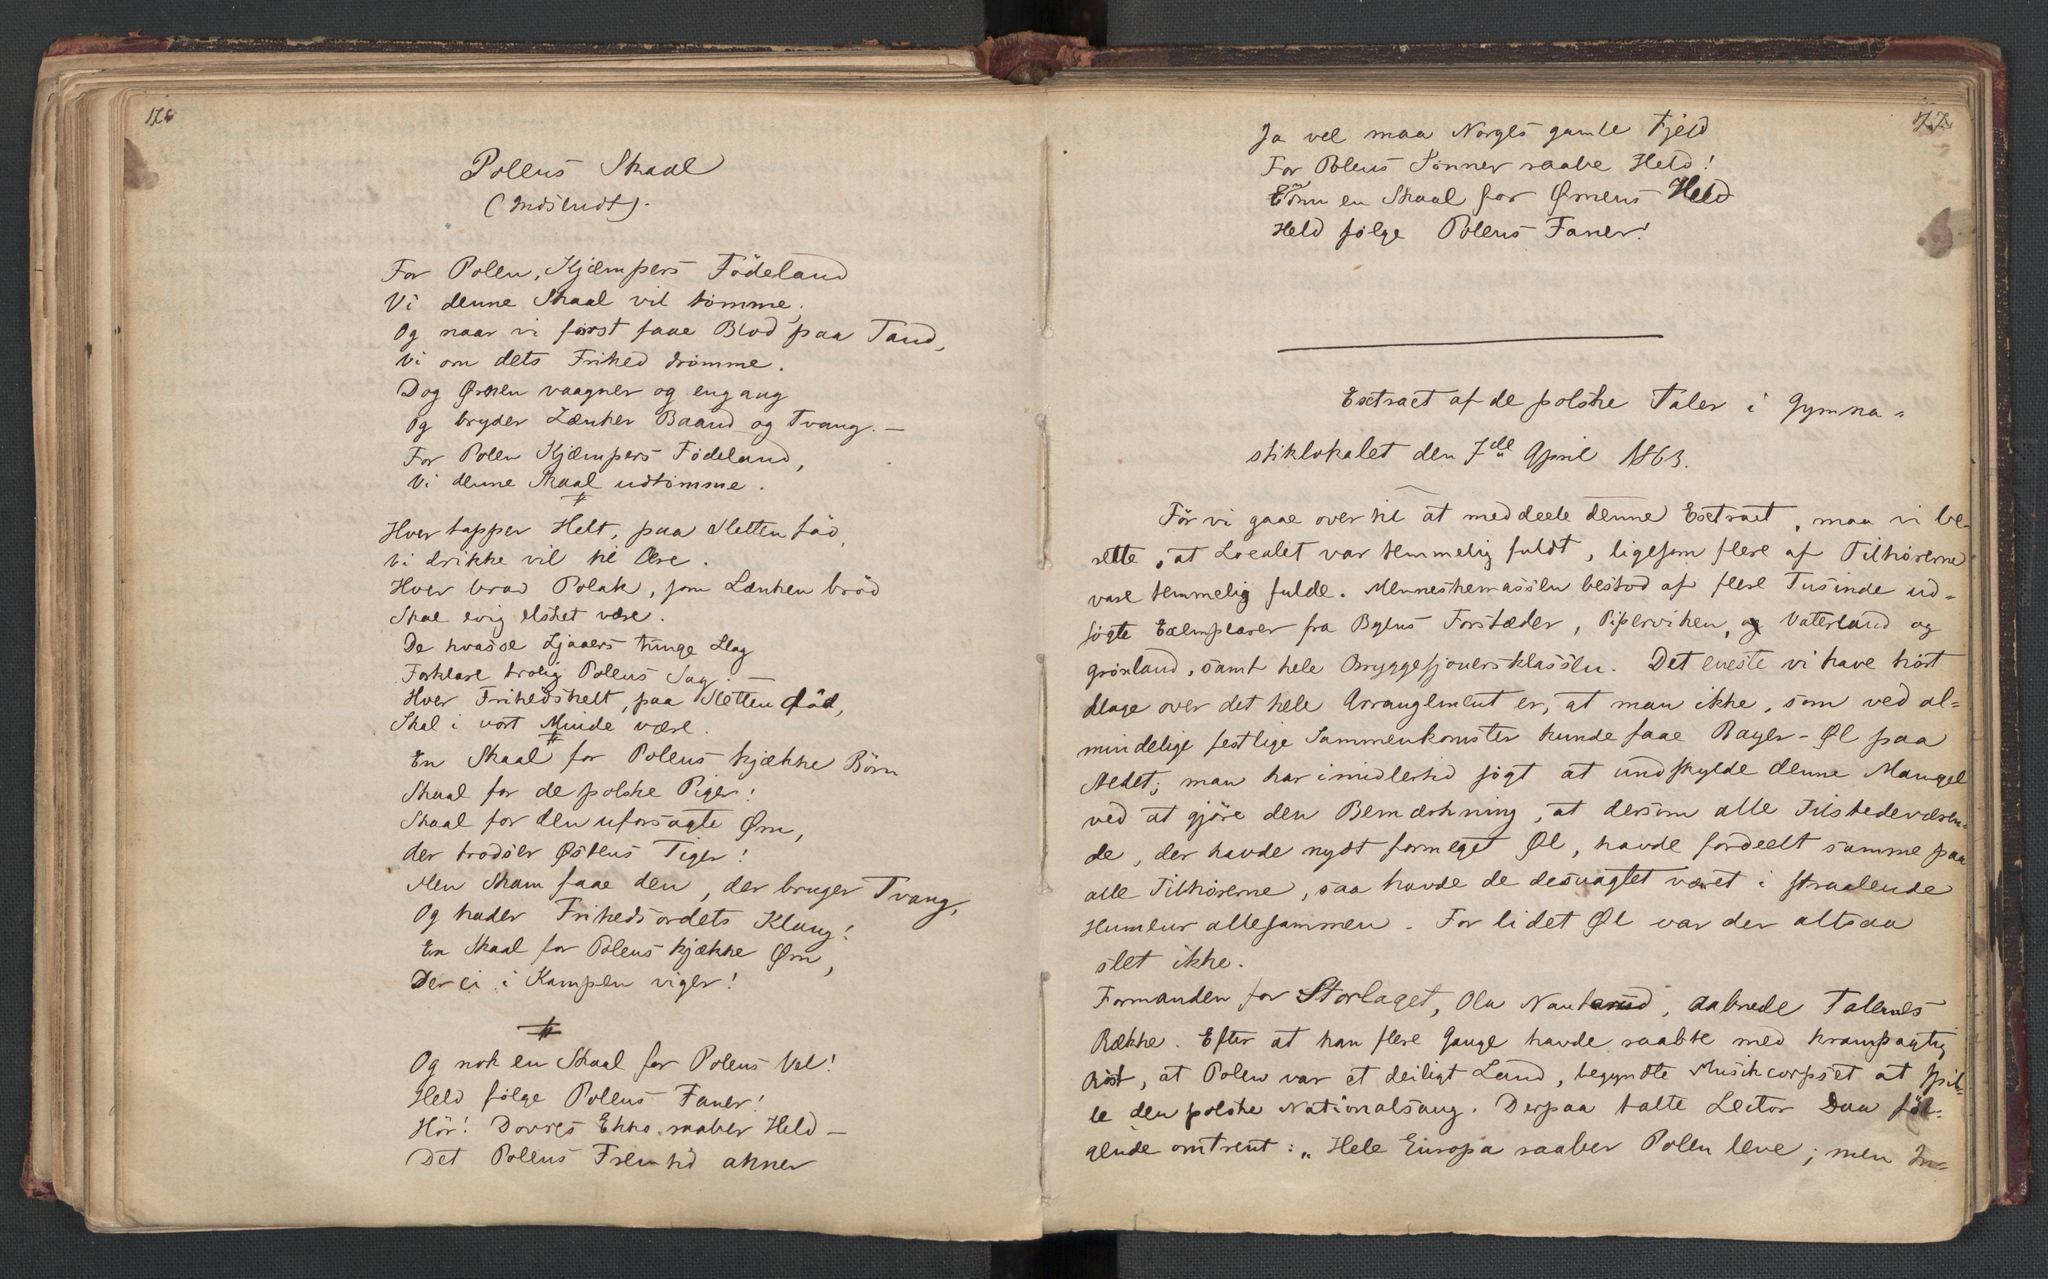 176
Polens Skaal
(Indsendt).
For Polen, Kjæmpers Födeland
Vi denne Skaal vil tømme,
Og naar vi først faae Blod paa Tand,
Vi om dets Frihed drømme.
Dog Ørnen vaagner og engang
Og bryder Lænker Baand og Tvang. —
For Polen Kjæmpers Födeland,
Vi denne Skaal udtømme.
#
Hver tapper Helt, paa Sletten föd,
Vi drikke vil til Ære.
Hver brav Polak, som Lænken bröd
Skal evig elsket være.
De hvasse Ljaaers tunge Slag
Forklare trolig Polens Sag. —
Hver Frihedshelt, paa Sletten död,
Skal i vort Minde være.
#
En Skaal for Polens kjække Börn
Skaal for de polske Piger!
Skaal for den uforsagte Ørn,
der trodser Østens Tiger!
Men Skam faae den, der bruger Tvang,
Og hader Frihedsordets Klang!
En Skaal for Polens kjække Ørn,
Der ei i Kampen viger!
#
Og nok en Skaal for Polens Vel!
Held følge Polens Faner!
Hör! Dovres Ekko raaber Held —
Det Polens Fremtid ahner
177
Ja vel maa Norges gamle Fjeld
For Polens Sønner raabe Held!
en Skaal for Ørnens Held
Held følge Polens Faner!
Extract af de polske Taler i Gymna=
stiklokalet den 7de April 1863.
För vi gaae over til at meddeele denne Extract, maa vi be-
rette, at Localet var temmelig fuldt, ligesom flere af Tilhørerne
vare temmelig fulde. Menneskemassen bestod af flere Tusinde ud=
søgte Exemplarer fra Byens Forstæder, Piperviken, og Vaterland og
Grønland, samt hele Bryggesjouersklassen. Det eneste vi have hört
klage over det hele Arrangement er, at man ikke, som ved al=
mindelige festlige Sammenkomster kunde faae Bayer-Øl paa
Stedet; man har imidlertid søgt at undskylde denne Mangel
ved at gjöre den Bemærkning, at dersom alle Tilstedeværen-
de, der havde nydt formeget Øl, havde fordeelt samme paa
alle Tilhørerne, saa havde de desuagtet været i straalende
Humeur allesammen. For lidet Øl var der altsaa
slet ikke.
Formanden for Storlaget, Ola aabnede Talernes
Række. Efter at han flere Gange havde raabt med krampagtig
Røst, at Polen var et deiligt Land, begyndte Musikcorpset at spil-
le den polske Nationalsang. Derpaa talte Lector Daa föl-
gende omtrent: „Hele Europa raaber Polen leve; men